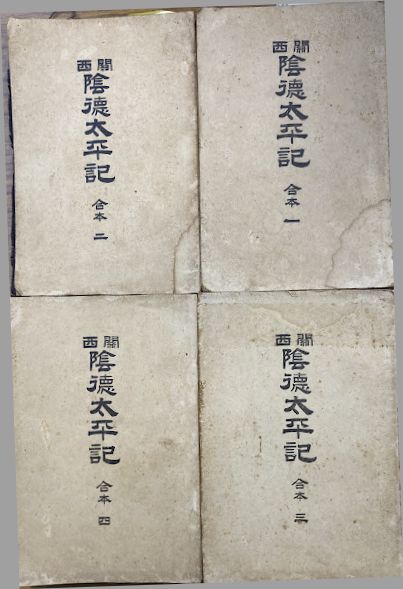 關西
陰德太平記
合本 一
關西
陰德太平記
合本 二
關西
陰德太平記
合本 三
關西
陰德太平記
合本 四